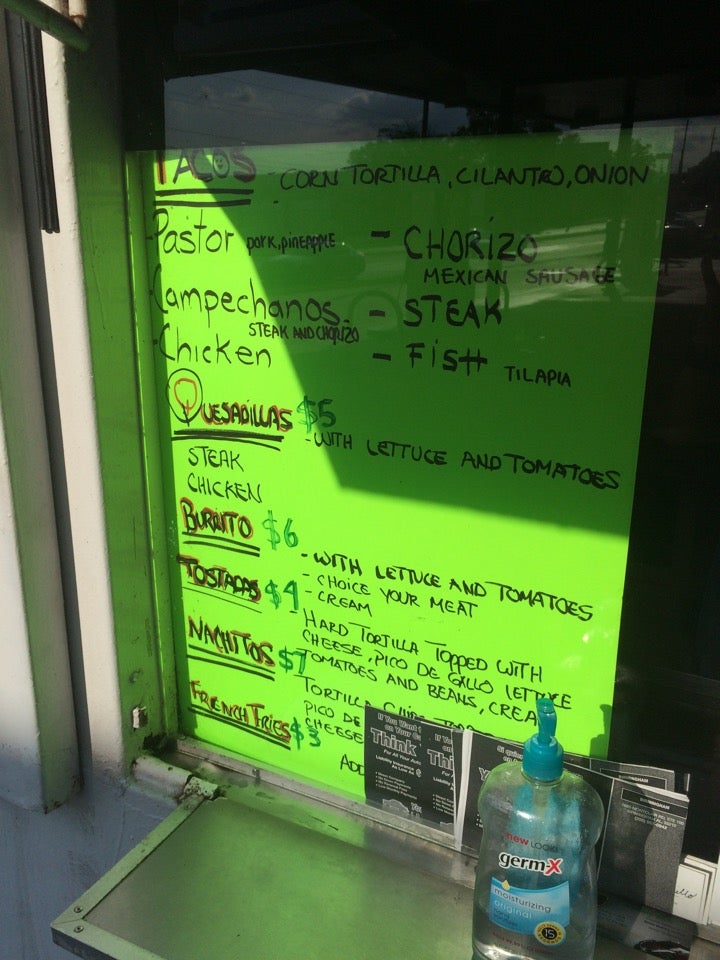 TACOS CORN TORTILLA, CILANTRO, ONION
Pastor pork, pineapple - CHORIZO
MEXICAN SAUSAGE
Campechanos - STEAK
STEAK AND CHORIZO
Chicken - FISH TILAPIA
QUESADILLAS $5
- WITH LETTUCE AND TOMATOES
STEAK
CHICKEN
BURRITO $6
- WITH LETTUCE AND TOMATOES
- CHOICE YOUR MEAT
- CREAM
TOSTADAS $4
HARD TORTILLA TOPPED WITH
CHEESE, PICO DE GALLO LETTUCE
TOMATOES AND BEANS, CREA
NACHITOS $7
TORTILLA
PICO DE
CHEESE
FRENCH FRIES $3
ADD
If You Want
on Your Ca
Think
For All Your Auto
Thi
BIRMINGHAM
new LOOK!
germ-X
moisturizing
original
15